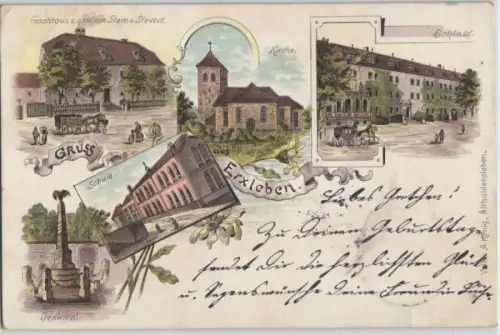 Gasthaus z. goldnen Stern v.
Kirche.
Schloss.
Gruss
aus
Erxleben.
Schule.
Denkmal.
Liebes Gretchen!
Zu Deinem Geburtstage
sendet Dir die herzlichsten Glück-
u. Segenswünsche Deine Freundin
Althaldensleben.